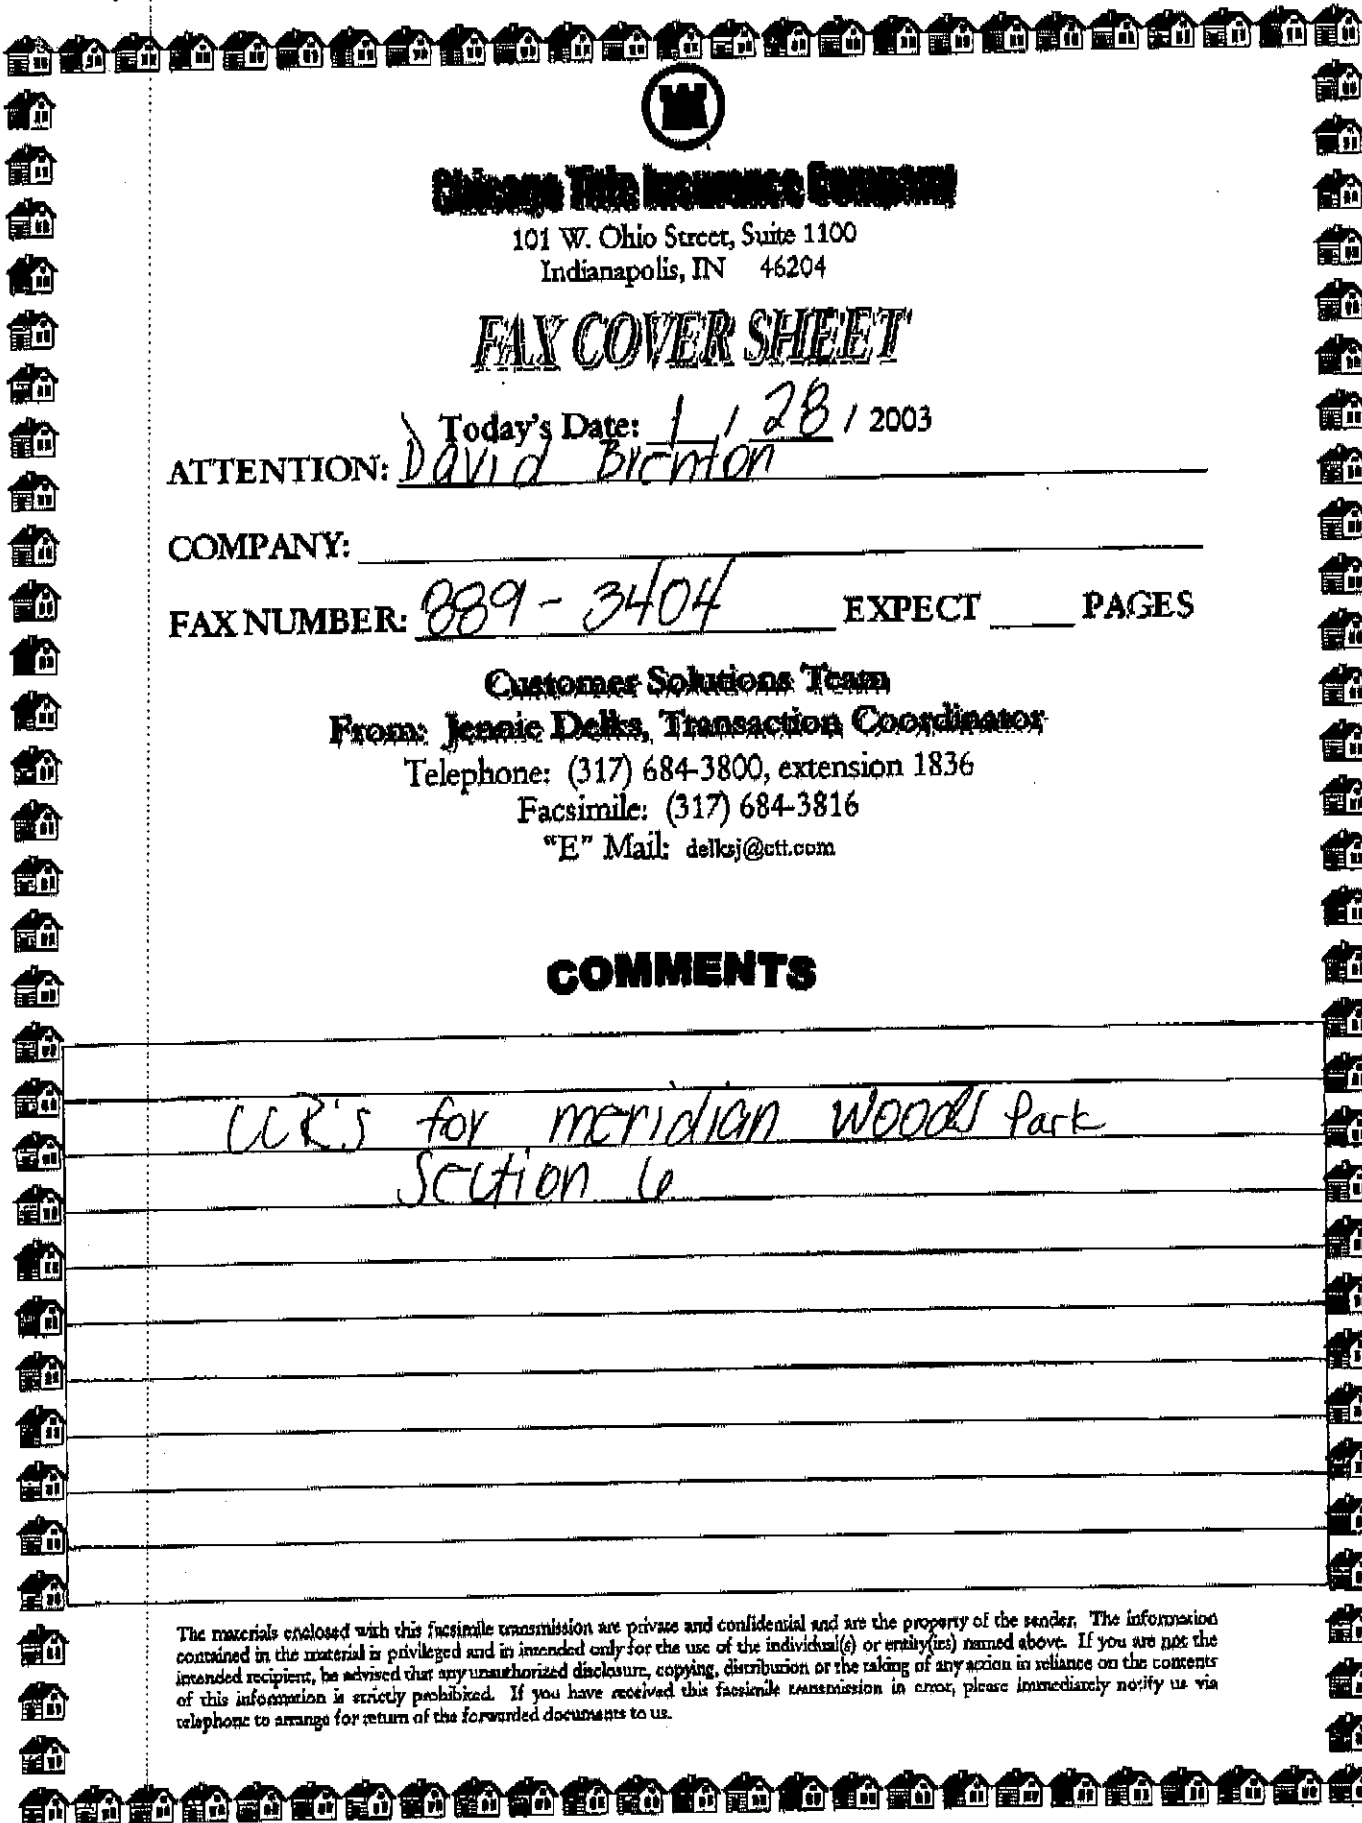 Chicago Title Insurance Company
101 W. Ohio Street, Suite 1100
Indianapolis, IN 46204
FAX COVER SHEET
Today's Date: 1 / 28 / 2003
ATTENTION: David Brenton
COMPANY:
FAX NUMBER: 889-3404 EXPECT ____ PAGES
Customer Solutions Team
From: Jennie Delks, Transaction Coordinator
Telephone: (317) 684-3800, extension 1836
Facsimile: (317) 684-3816
"E" Mail: delksj@ctt.com
COMMENTS
CCR's for meridian woods Park
Section 6
The materials enclosed with this facsimile transmission are private and confidential and are the property of the sender. The information
contained in the material is privileged and is intended only for the use of the individual(s) or entity(ies) named above. If you are not the
intended recipient, be advised that any unauthorized disclosure, copying, distribution or the taking of any action in reliance on the contents
of this information is strictly prohibited. If you have received this facsimile transmission in error, please immediately notify us via
telephone to arrange for return of the forwarded documents to us.